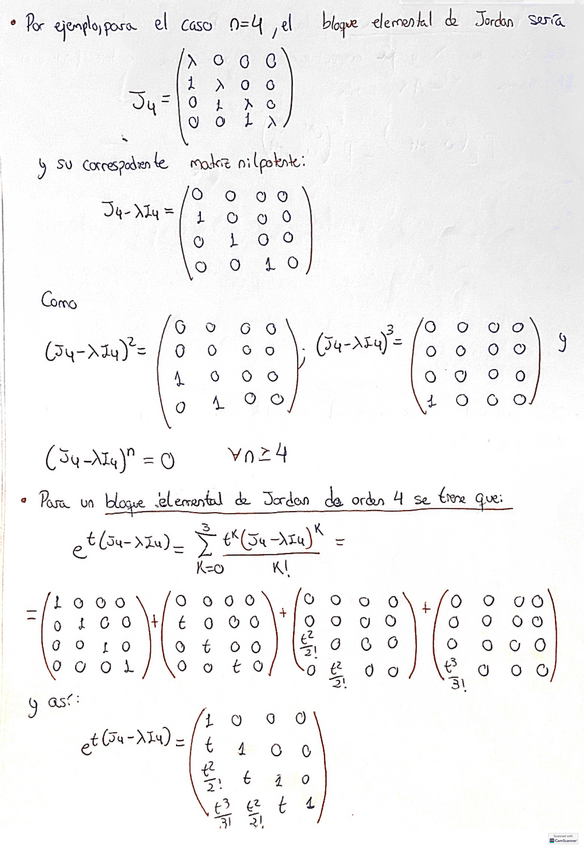 • Por ejemplo, para el caso n=4, el bloque elemental de Jordan sería
J₄ = 
λ 0 0 0
1 λ 0 0
0 1 λ 0
0 0 1 λ
y su correspodiente matriz nilpotente:
J₄-λI₄ = 
0 0 0 0
1 0 0 0
0 1 0 0
0 0 1 0
Como
(J₄-λI₄)² = 
0 0 0 0
0 0 0 0
1 0 0 0
0 1 0 0
; (J₄-λI₄)³ = 
0 0 0 0
0 0 0 0
0 0 0 0
1 0 0 0
y
(J₄-λI₄)ⁿ = 0 ∀n≥4
• Para un bloque elemental de Jordan de orden 4 se tiene que:
e^t(J₄-λI₄) = ∑ K=0 3 t^K (J₄-λI₄)^K / K! =
= 
1 0 0 0
0 1 0 0
0 0 1 0
0 0 0 1
+
0 0 0 0
t 0 0 0
0 t 0 0
0 0 t 0
+
0 0 0 0
0 0 0 0
t²/2! 0 0 0
0 t²/2! 0 0
+
0 0 0 0
0 0 0 0
0 0 0 0
t³/3! 0 0 0
y así:
e^t(J₄-λI₄) = 
1 0 0 0
t 1 0 0
t²/2! t 1 0
t³/3! t²/2! t 1
Scanned with
CamScanner